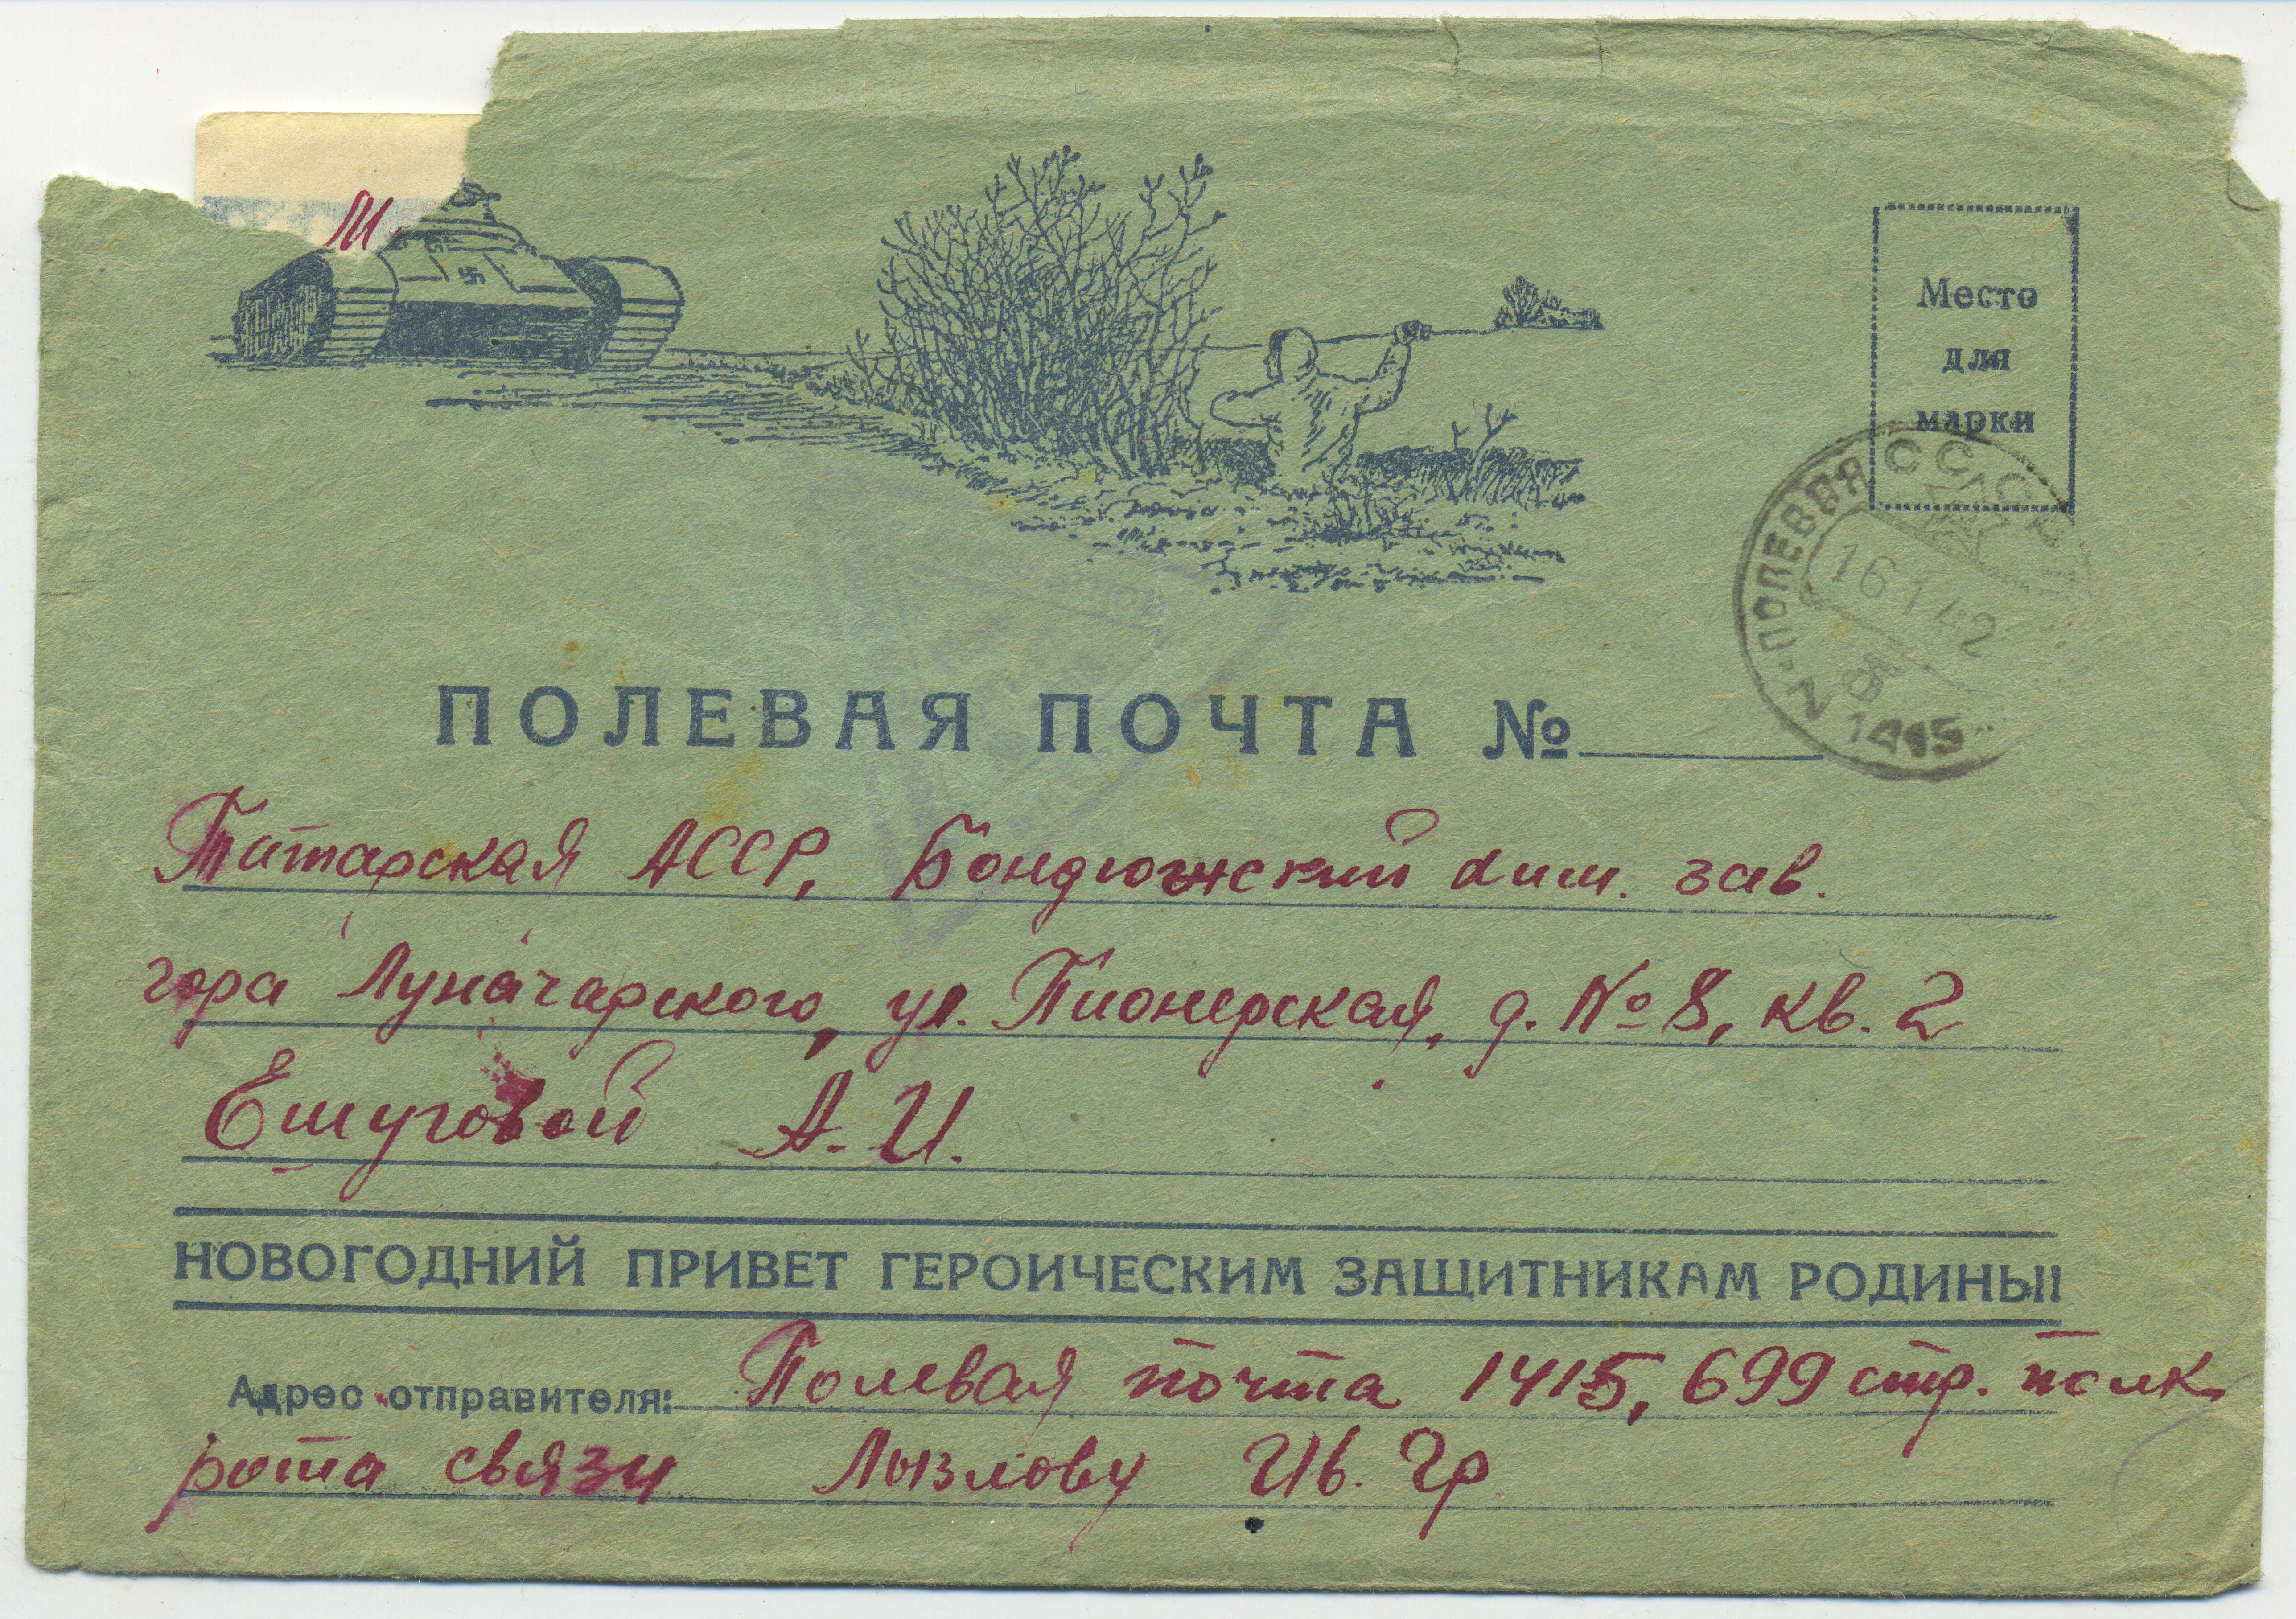 М
Место
для
марки
ПОЛЕВАЯ СССР
16 1 42
№ 1415
ПОЛЕВАЯ ПОЧТА №
Татарская АССР, Бондюжский хим. зав.
гора Луначарского, ул. Пионерская, д. № 8, кв. 2
Ешуговой А. И.
НОВОГОДНИЙ ПРИВЕТ ГЕРОИЧЕСКИМ ЗАЩИТНИКАМ РОДИНЫ!
Адрес отправителя: Полевая почта 1415, 699 стр. полк
рота связи Лызлову Ив. Гр